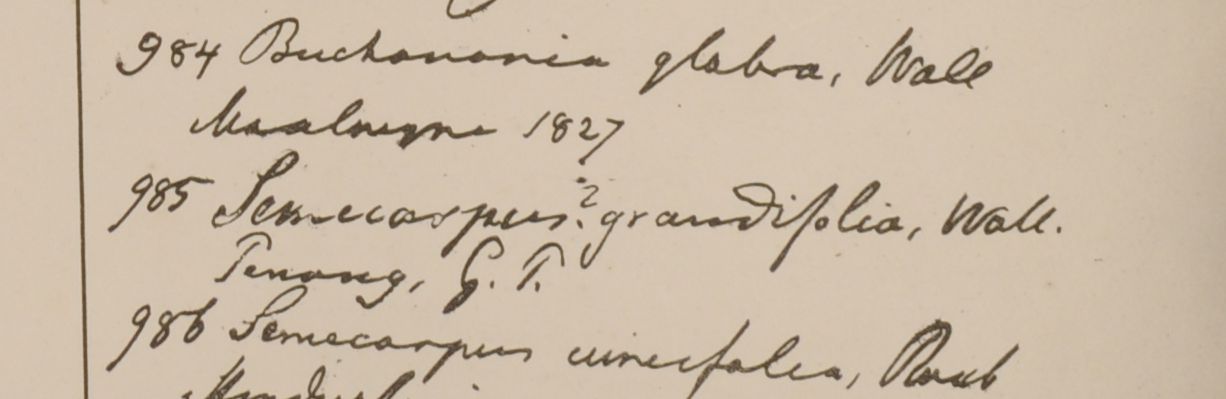 984 Buchanania glabra, Wall
Moalmyne 1827
985 Semecarpus? grandifolia, Wall.
Penang, G. P.
986 Semecarpus cuneifolia, Roxb